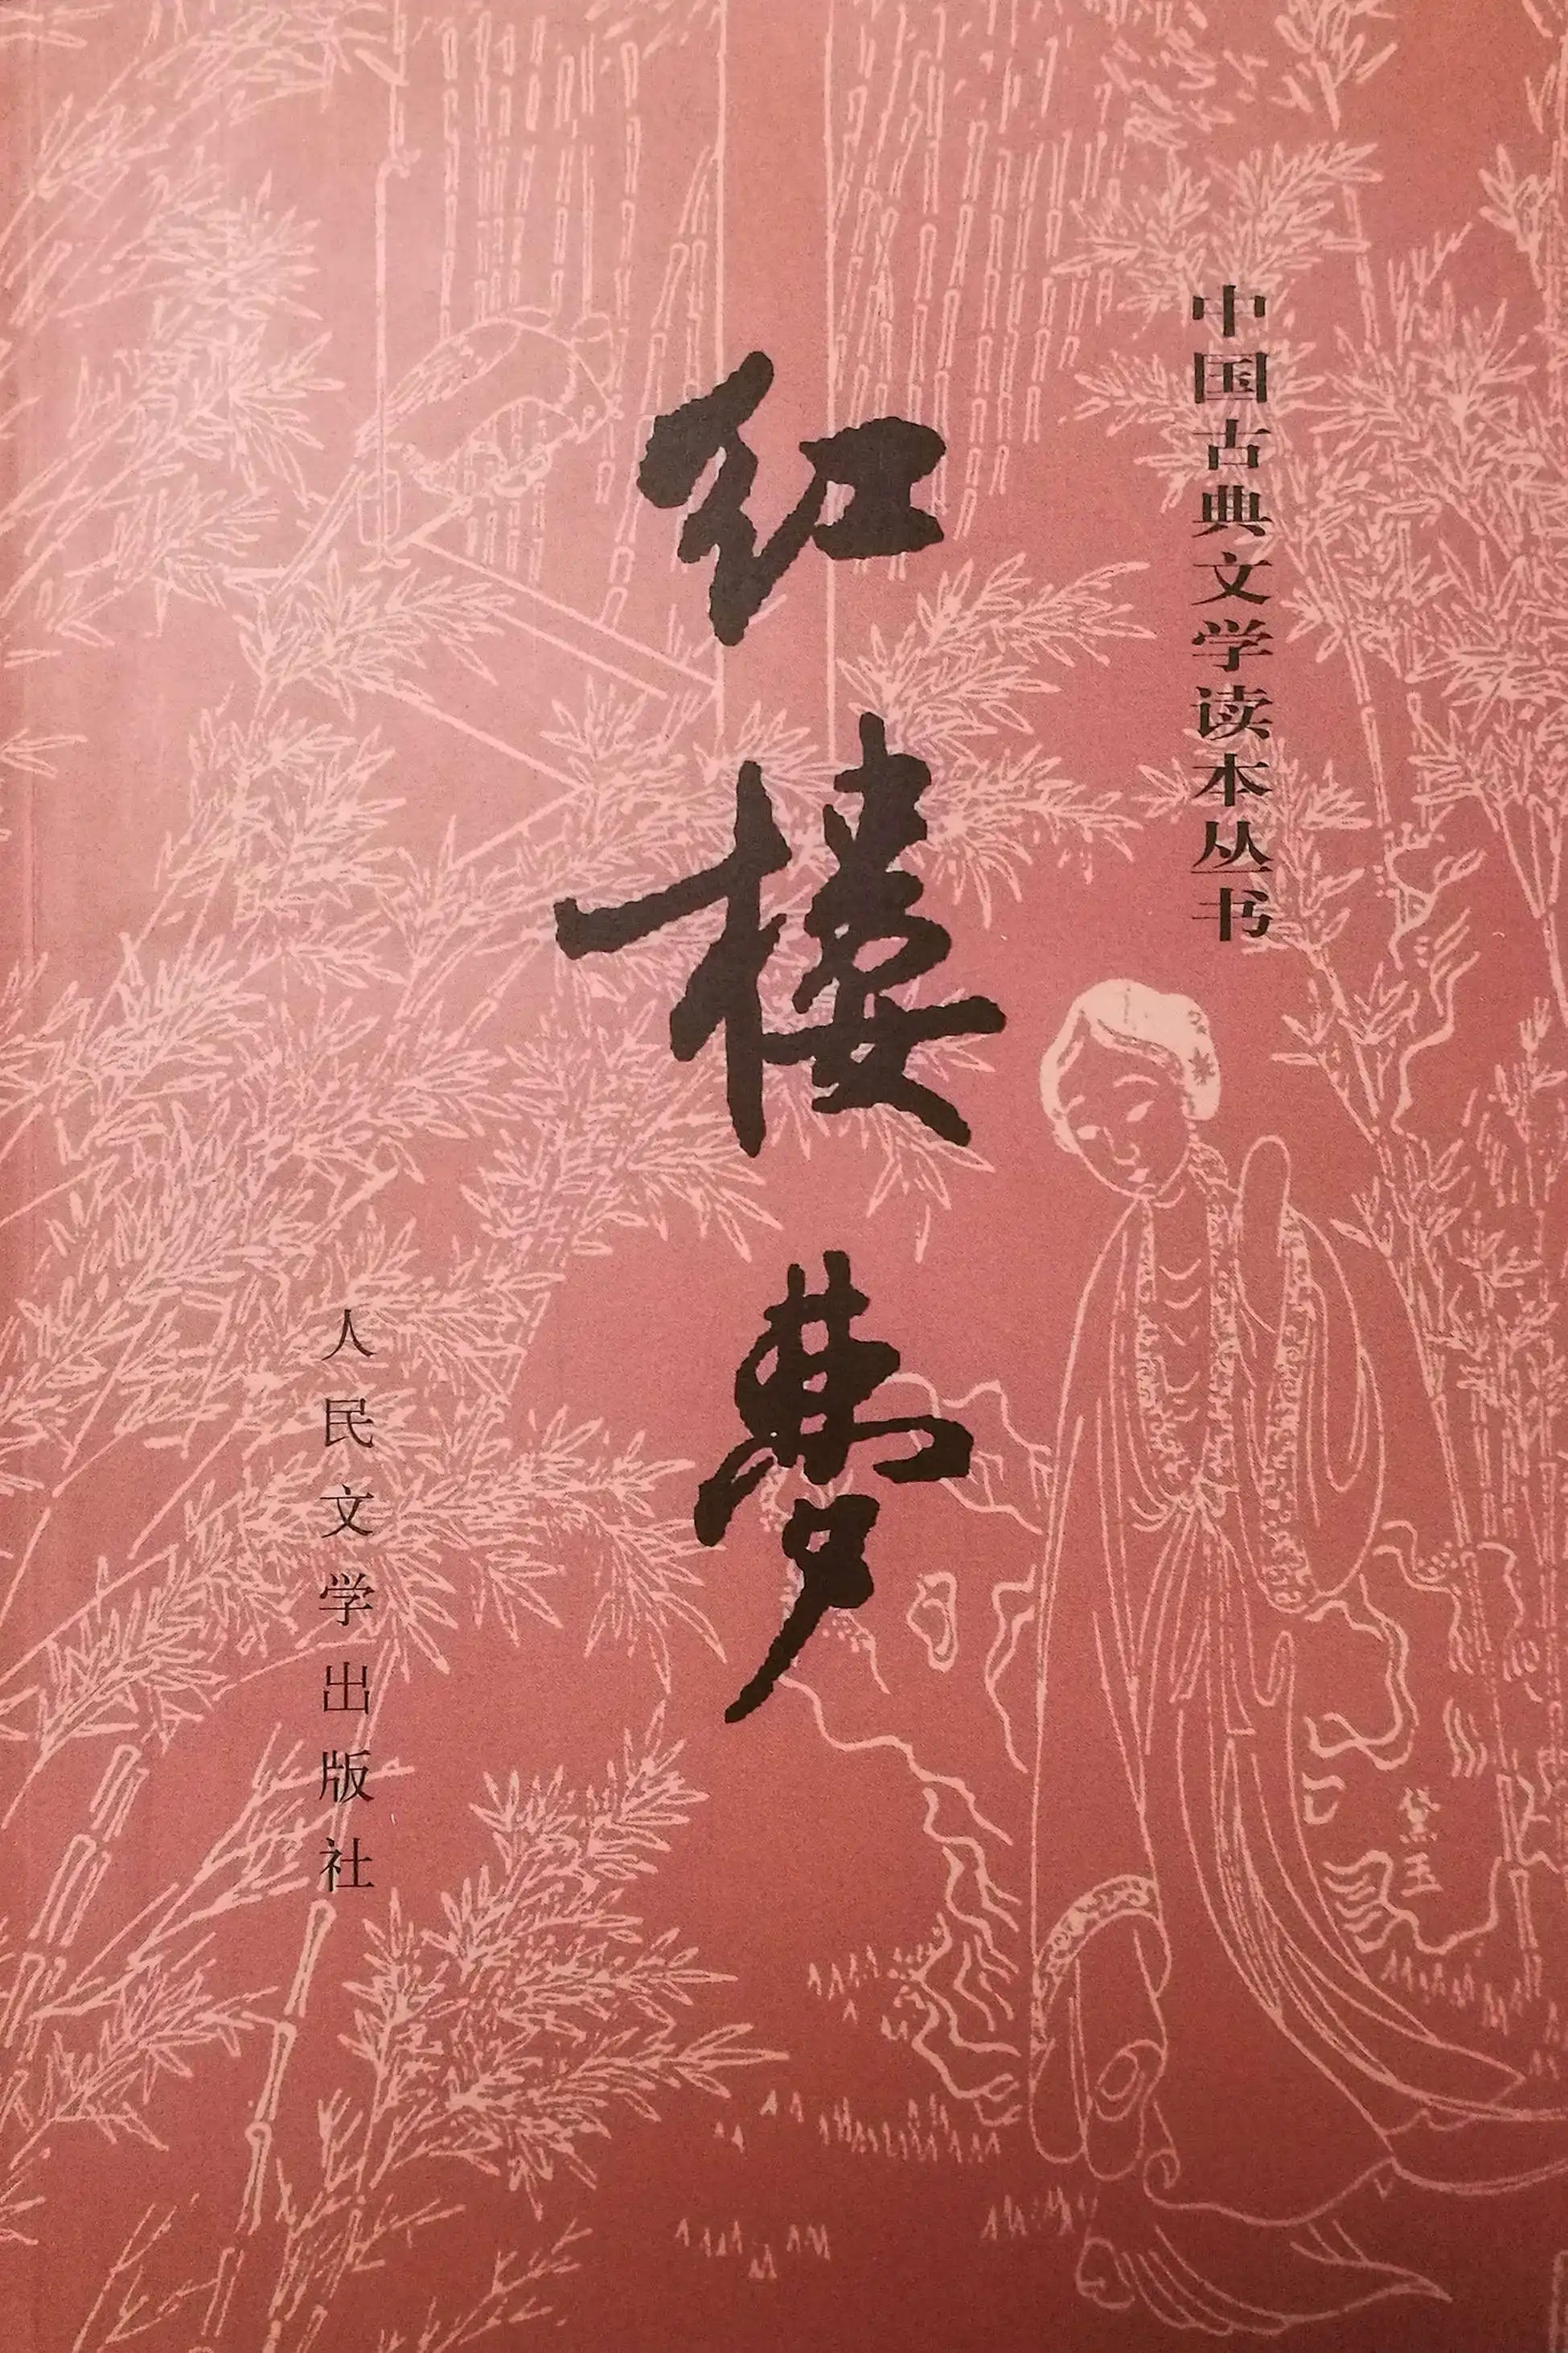 中国古典文学读本丛书
红楼梦
人民文学出版社
黛玉